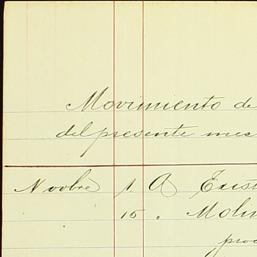 Movimiento de
del presente mes
Novbre 1 A Exist
15 " Molin
proc